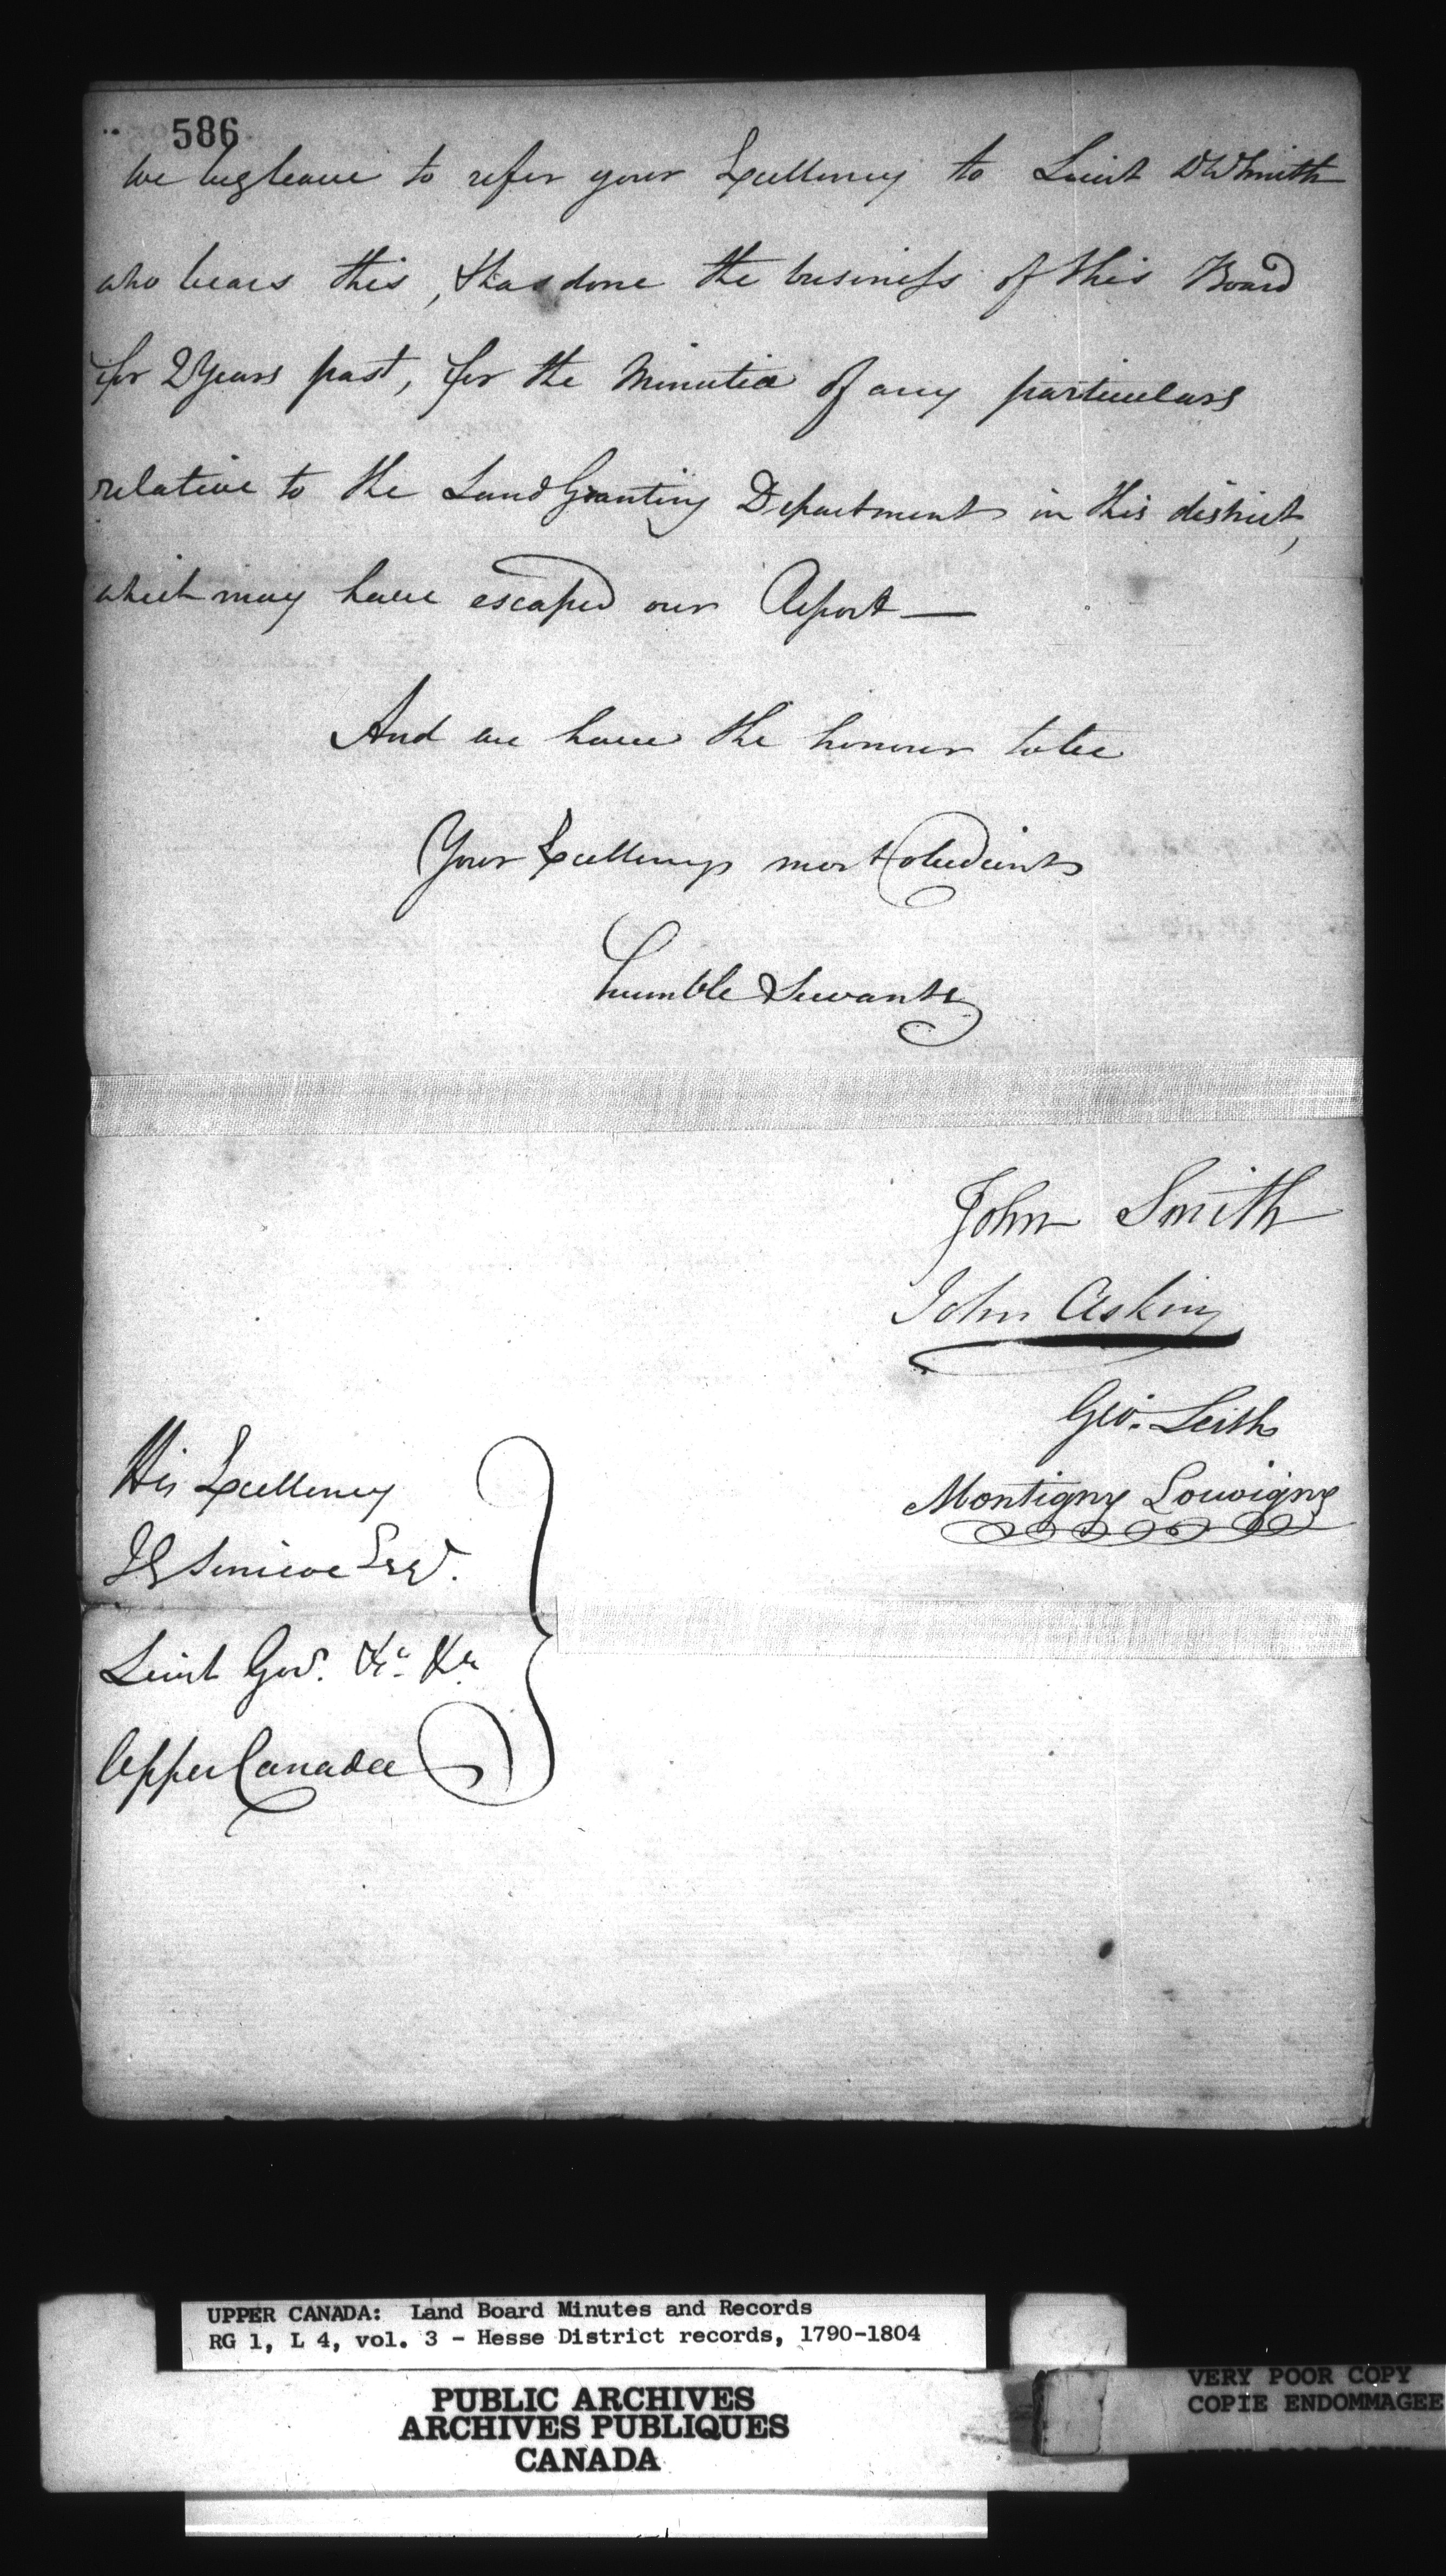 586
We beg leave to refer your Excellency to Lieut DWSmith
who bears this, & has done the business of this Board
for 2 Years past, for the Minutia of any particulars
relative to the Land Granting Department in this district,
which may have escaped our Report —
And we have the honour to be
Your Excellencys most obedient
humble Servants
John Smith
John Askin
Geo. Leith
Montigny Louvigny
His Excellency
JG Simcoe Esqr.
Lieut Govr. &c. &c
Upper Canada
UPPER CANADA: Land Board Minutes and Records
RG 1, L 4, vol. 3 - Hesse District records, 1790-1804
PUBLIC ARCHIVES
ARCHIVES PUBLIQUES
CANADA
VERY POOR COPY
COPIE ENDOMMAGEE